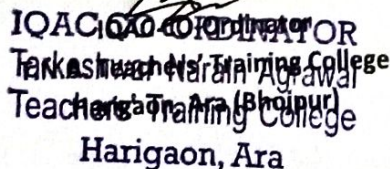 IQAC CO-ORDINATOR
Tarkeshwar Narain Agrawal
Teachers' Training College
Harigaon, Ara
IQAC Co-ordinator
Teachers' Training College
Harigaon, Ara (Bhojpur)